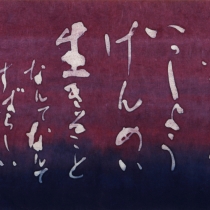 いっしょう
けんめい
生きること
なんてなんて
すばらしい